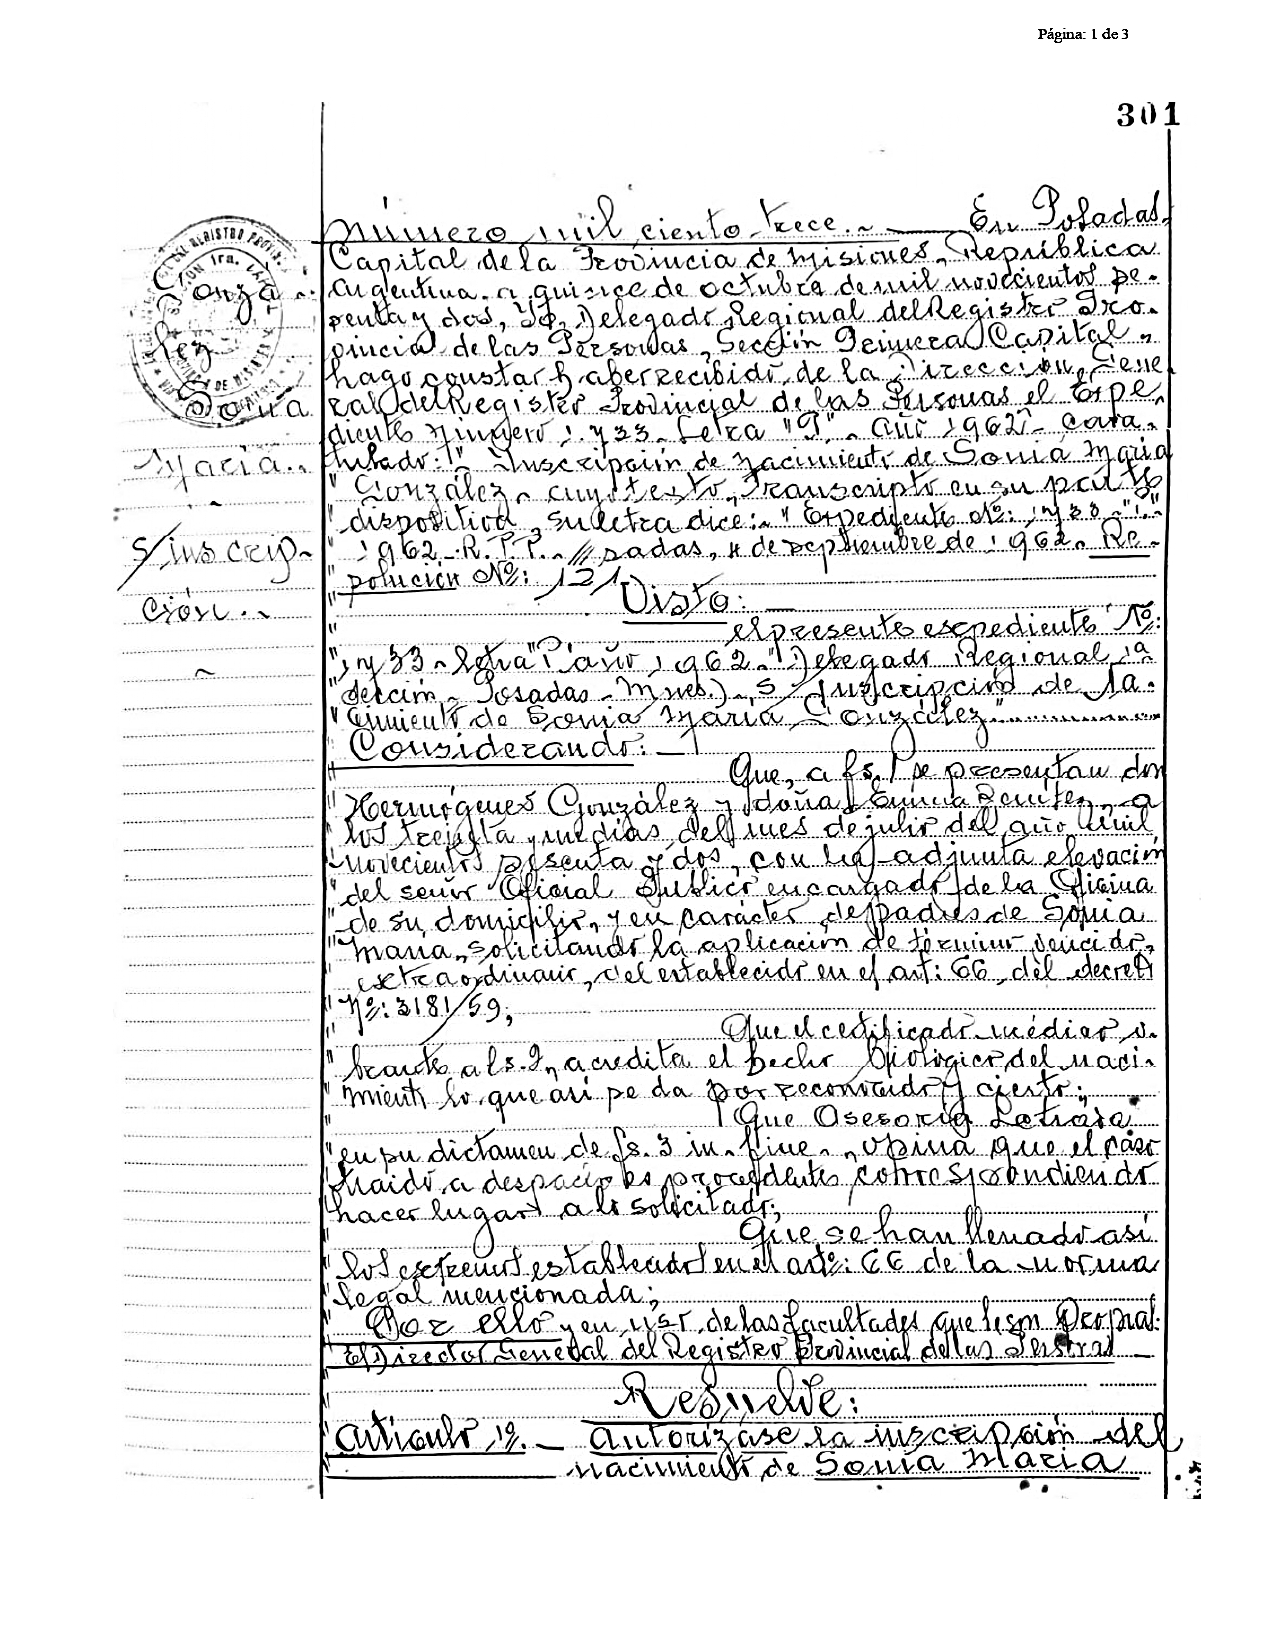 Página: 1 de 3
301
Número mil ciento trece.~ En Posadas,
Capital de la Provincia de Misiones, República
Argentina, a quince de octubre de mil novecientos se-
senta y dos, Yo, Delegado Regional del Registro Pro-
vincial de las Personas, Sección Primera Capital,
hago constar haber recibido de la Dirección Gene
ral del Registro Provincial de las Personas el Expe-
diente Número 1.733- Letra "P". año 1962- cara-
tulado: "Inscripción de nacimiento de Sonia María
" González, cuyo texto, Transcripto en su parte
" dispositiva, su letra dice: " Expediente Nº: 1733-"P"-
" 1962-R.P.P.- ///sadas, 4 de septiembre de 1962. Re-
" solución Nº: 121
" Visto:
" el presente expediente Nº:
" 1733-letra "P" año 1962-" Delegado Regional 1ª
" Sección- Posadas-Mnes.)- S/ Inscripción de Na-
" cimiento de Sonia María González"
Considerando:
Que, a fs. 1 se presentan don
" Hermógenes González y doña Benítez, a
" los treinta y un días del mes de julio del año mil
" novecientos sesenta y dos, con la adjunta elevación
" del señor Oficial Público encargado de la Oficina
" de su domicilio, y en carácter de padres de Sonia
" María, solicitando la aplicación de término vencido,
" extraordinario, del establecido en el art: 66, del decreto
" Nº: 3181/59;
" Que el certificado médico o-
" brante a fs. 2, acredita el hecho biológico del naci-
" miento lo que así se da por reconocido y cierto;
" Que Asesoría Letrada
" en su dictamen de fs. 3 in-fine-, opina que el caso
" traído a despacho es procedente, correspondiendo
" hacer lugar a lo solicitado;
" Que se han llenado así
" los extremos establecidos en el artº: 66 de la norma
" legal mencionada;
Por ello y en uso de las facultades que le son propias:
El Director General del Registro Provincial de las Personas
Resuelve:
Artículo 1º.- Autorízase la inscripción del
nacimiento de Sonia María
Gonzá-
lez
Sonia
María.-
S/inscrip-
ción.-